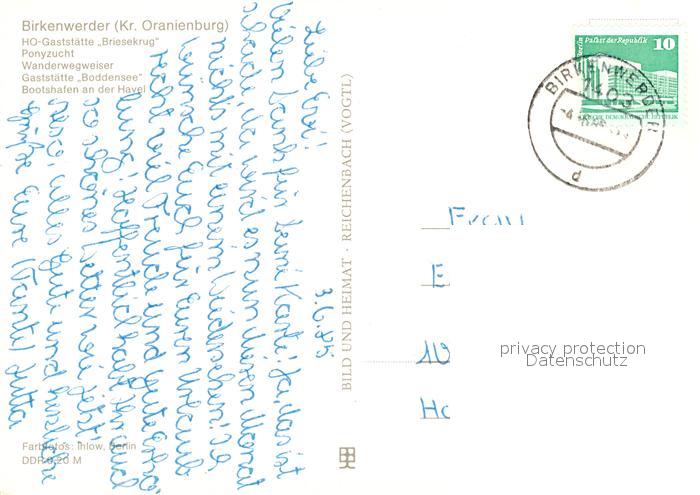 Birkenwerder (Kr. Oranienburg)
HO-Gaststätte „Briesekrug"
Ponyzucht
Wanderwegweiser
Gaststätte „Boddensee"
Bootshafen an der Havel
3.6.85
Liebe
Vielen Dank für Deine Karte! Ja, das ist
schade, da wird es nun diesen Monat
nichts mit einem Wiedersehen! Ich
wünsche Euch für Euren Urlaub
recht viel Freude und gute Erho-
lung! Hoffentlich habt Ihr auch
so schönes Wetter wie jetzt!
alles Gute und herzliche
Grüße Eure Jutta
Farbfotos: Ihlow, Berlin
DDR 0,20 M
BILD UND HEIMAT · REICHENBACH (VOGTL)
Berlin Palast der Republik 10
DEUTSCHE DEMOKRATISCHE REPUBLIK
BIRKENWERDER
1403
d
E
W
privacy protection
Datenschutz